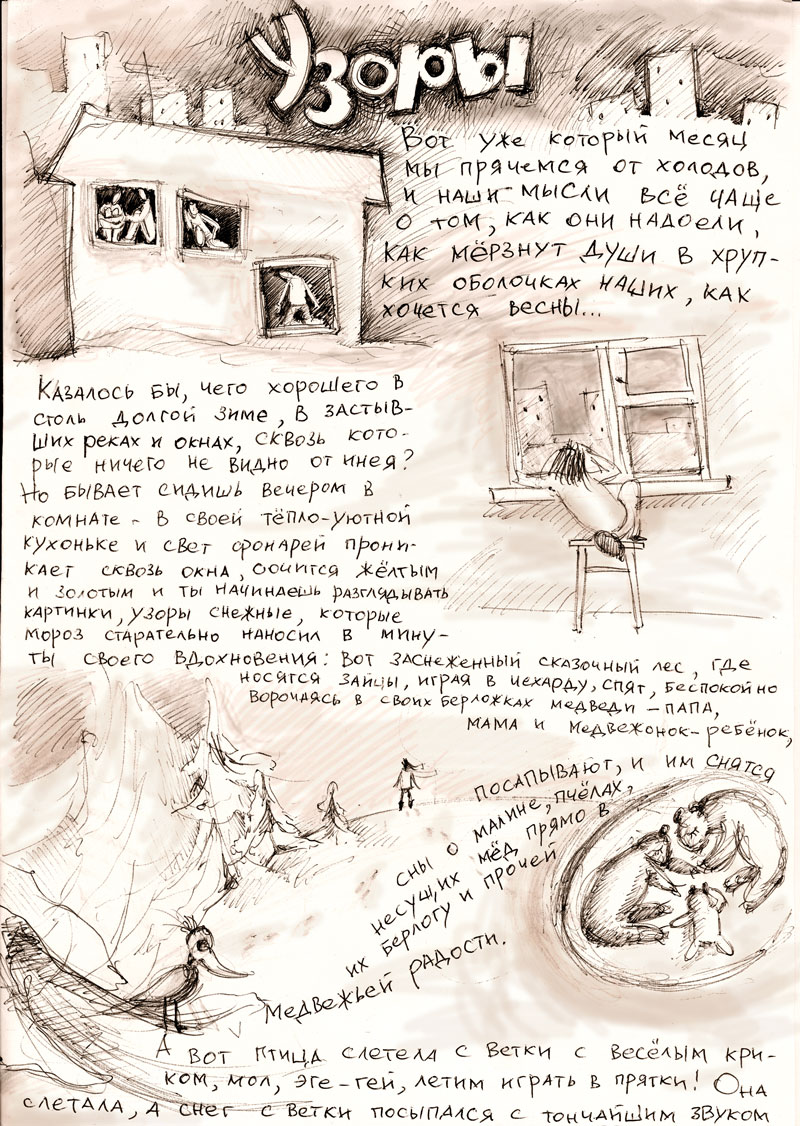 Узоры
Вот уже который месяц
мы прячемся от холодов,
и наши мысли всё чаще
о том, как они надоели,
как мёрзнут души в хруп-
ких оболочках наших, как
хочется весны...
Казалось бы, чего хорошего в
столь долгой зиме, в застыв-
ших реках и окнах, сквозь кото-
рые ничего не видно от инея?
Но бывает сидишь вечером в
комнате - в своей тёпло-уютной
кухоньке и свет фонарей прони-
кает сквозь окна, сочится жёлтым
и золотым и ты начинаешь разглядывать
картинки, узоры снежные, которые
мороз старательно наносил в мину-
ты своего вдохновения: вот заснеженный сказочный лес, где
носятся зайцы, играя в чехарду, спят, беспокойно
ворочаясь в своих берложках медведи - папа,
мама и медвежонок-ребёнок,
посапывают, и им снятся
сны о малине, пчёлах,
несущих мёд прямо в
их берлогу и прочей
медвежьей радости.
А вот птица слетела с ветки с весёлым кри-
ком, мол, эге-гей, летим играть в прятки! Она
слетала, а снег с ветки посыпался с тончайшим звуком